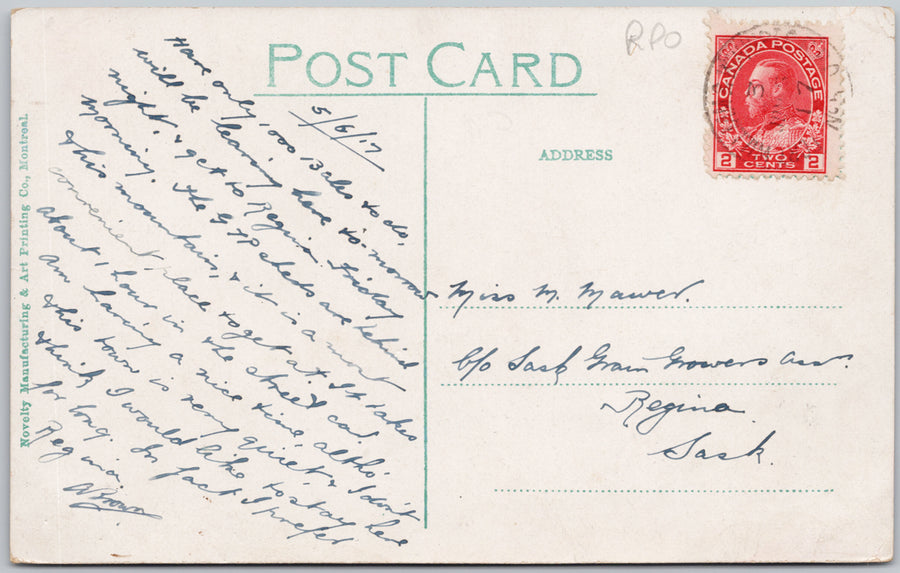 POST CARD
RPO
CANADA POSTAGE
2 TWO CENTS 2
ADDRESS
Novelty Manufacturing & Art Printing Co., Montreal.
5/6/17
Have only 100 Bales to do,
will be leaving here to-morrow
night, & get to Regina Friday
morning. The GTP sheds are behind
this mountain, & it is a most
convenient place to get at. It takes
about 1 hour in the street car. I
am having a nice time, altho'
this town is very quiet, & I don't
think I would like to stay here
for long. In fact I prefer
Regina.
ABrown
Miss M. Mawer.
c/o Sask Grain Growers Assn.
Regina
Sask.